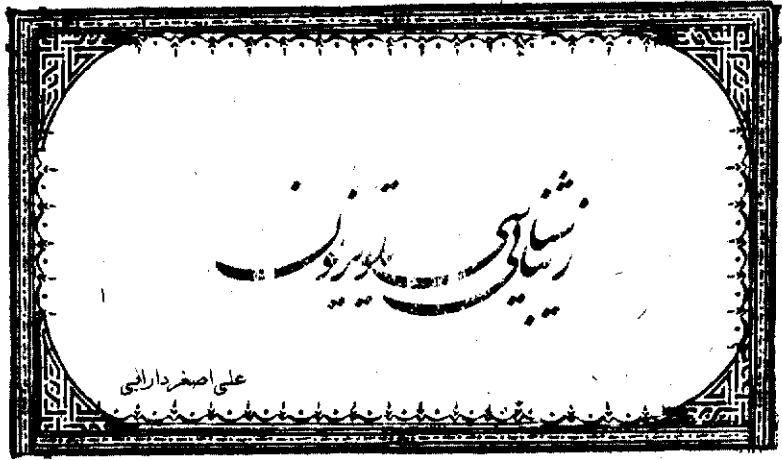 زیبایی‌شناسی تلویزیون
علی اصغر دارایی